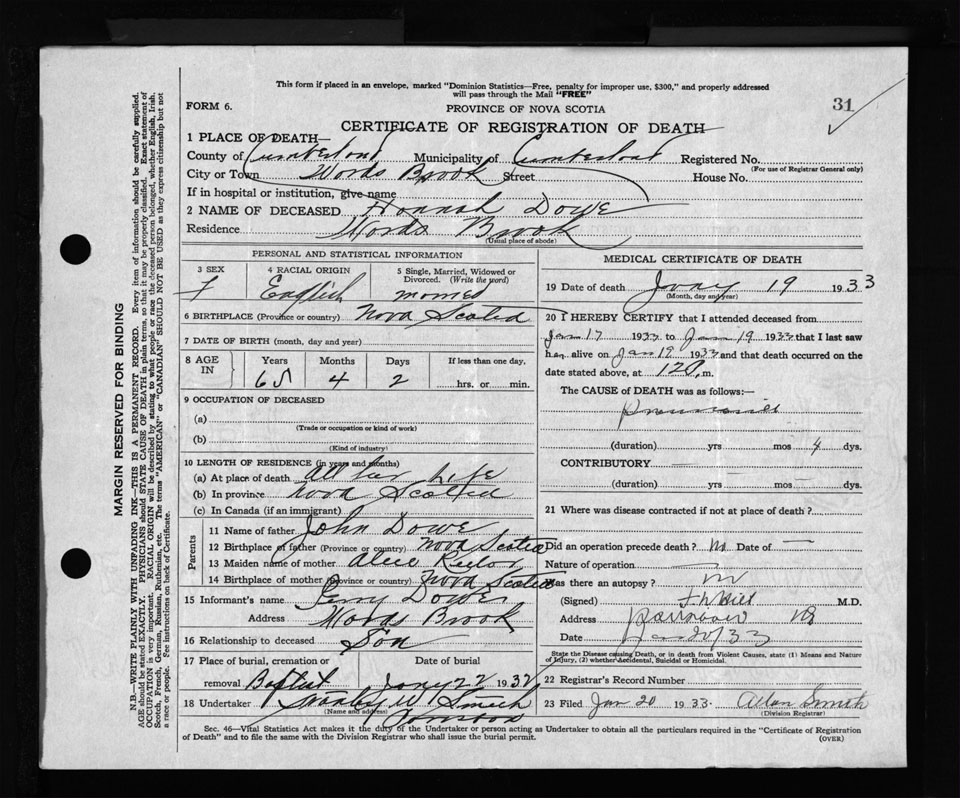 This form if placed in an envelope, marked "Dominion Statistics—Free, penalty for improper use, $300," and properly addressed
will pass through the Mail "FREE"
FORM 6.
PROVINCE OF NOVA SCOTIA
31
CERTIFICATE OF REGISTRATION OF DEATH
1 PLACE OF DEATH—
County of Cumberland Municipality of Cumberland Registered No.
(For use of Registrar General only)
City or Town Words Brook Street House No.
If in hospital or institution, give name
2 NAME OF DECEASED Hannah Dowe
Residence Words Brook
(Usual place of abode)
PERSONAL AND STATISTICAL INFORMATION
3 SEX
F
4 RACIAL ORIGIN
English
5 Single, Married, Widowed or Divorced. (Write the word)
married
6 BIRTHPLACE (Province or country) Nova Scotia
7 DATE OF BIRTH (month, day and year)
8 AGE IN
Years Months Days If less than one day.
65 4 2 hrs. or min.
9 OCCUPATION OF DECEASED
(a)
(Trade or occupation or kind of work)
(b)
(Kind of industry)
10 LENGTH OF RESIDENCE (in years and months)
(a) At place of death All her Life
(b) In province Nova Scotia
(c) In Canada (if an immigrant)
Parents
11 Name of father John Dowe
12 Birthplace of father (Province or country) Nova Scotia
13 Maiden name of mother
14 Birthplace of mother (Province or country) Nova Scotia
15 Informant's name Perry Dowe
Address Words Brook
16 Relationship to deceased Son
17 Place of burial, cremation or Date of burial
removal Baptist Jany 22 1932
18 Undertaker Stanley W Smith
(Name and address)
MEDICAL CERTIFICATE OF DEATH
19 Date of death Jany 19 1933
(Month, day and year)
20 I HEREBY CERTIFY that I attended deceased from
Jan 17 1933 to Jan 19 1933 that I last saw
her alive on Jan 19 1933 and that death occurred on the
date stated above, at 120 m.
The CAUSE of DEATH was as follows:—
pneumonia
(duration) yrs mos 4 dys.
CONTRIBUTORY —
(duration) — yrs mos — dys.
21 Where was disease contracted if not at place of death?
Did an operation precede death? no Date of —
Nature of operation —
Was there an autopsy? no
(Signed) Hill M.D.
Address Parrsboro NS
Date Jan 20/33
State the Disease causing Death, or in death from Violent Causes, state (1) Means and Nature
of Injury, (2) whether Accidental, Suicidal or Homicidal.
22 Registrar's Record Number
23 Filed Jan 20 1933. Allan Smith
(Division Registrar)
Sec. 46—Vital Statistics Act makes it the duty of the Undertaker or person acting as Undertaker to obtain all the particulars required in the "Certificate of Registration
of Death" and to file the same with the Division Registrar who shall issue the burial permit.
(OVER)
MARGIN RESERVED FOR BINDING
N.B.—WRITE PLAINLY WITH UNFADING INK—THIS IS A PERMANENT RECORD. Every item of information should be carefully supplied.
AGE should be stated EXACTLY. PHYSICIANS should STATE CAUSE OF DEATH in plain terms, so that it may be properly classified. Exact statement of
OCCUPATION is very important. RACIAL ORIGIN will be described by stating to what people or race the deceased person belonged, whether English, Irish,
Scotch, French, German, Russian, Ruthenian, etc. The terms "AMERICAN" or "CANADIAN" SHOULD NOT BE USED as they express citizenship but not
a race or people. See instructions on back of Certificate.